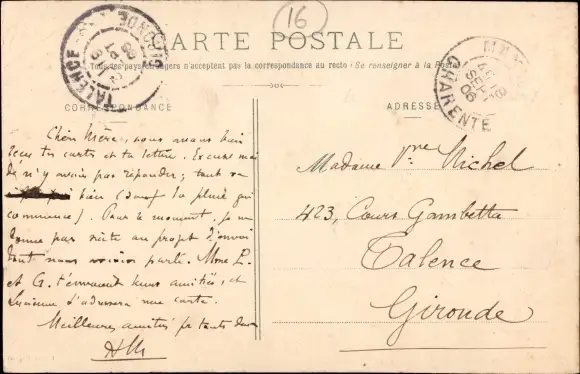 16
CARTE POSTALE
Tous les pays étrangers n'acceptent pas la correspondance au recto (Se renseigner à la Poste)
CORRESPONDANCE
ADRESSE
TALENCE
GIRONDE
CHARENTE
Chère Mère, nous avons bien
reçu tes cartes et ta lettre. Excuse moi
de n'y avoir pas répondu; tout va
bien (sauf la pluie qui
commence). Pour le moment, je ne
donne pas suite au projet d'envoi
dont nous avions parlé. Mme L.
et G. t'envoient leurs amitiés, et
Lucienne t'adressera une carte.
Meilleures amitiés
Madame Vve Michel
423, Cours Gambetta
Talence
Gironde